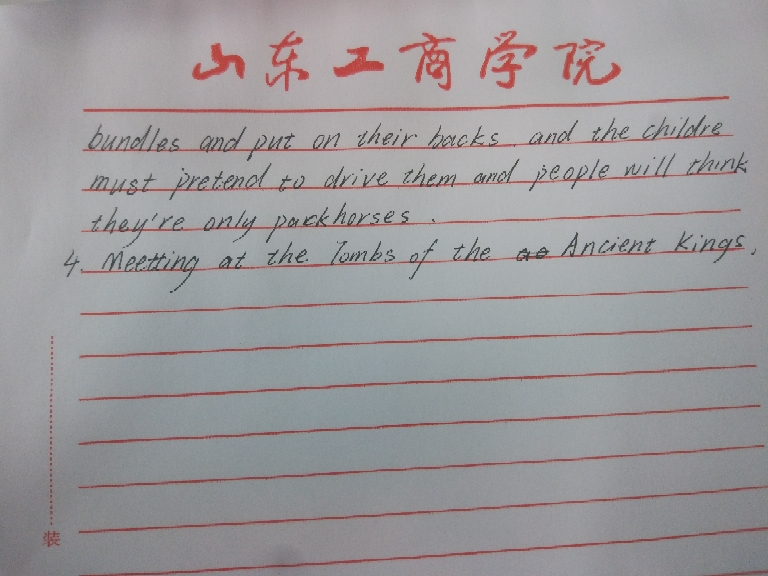 山东工商学院
bundles and put on their backs. and the childre
must pretend to drive them and people will think
they're only packhorses.
4. Meetting at the Tombs of the Ancient Kings.
装